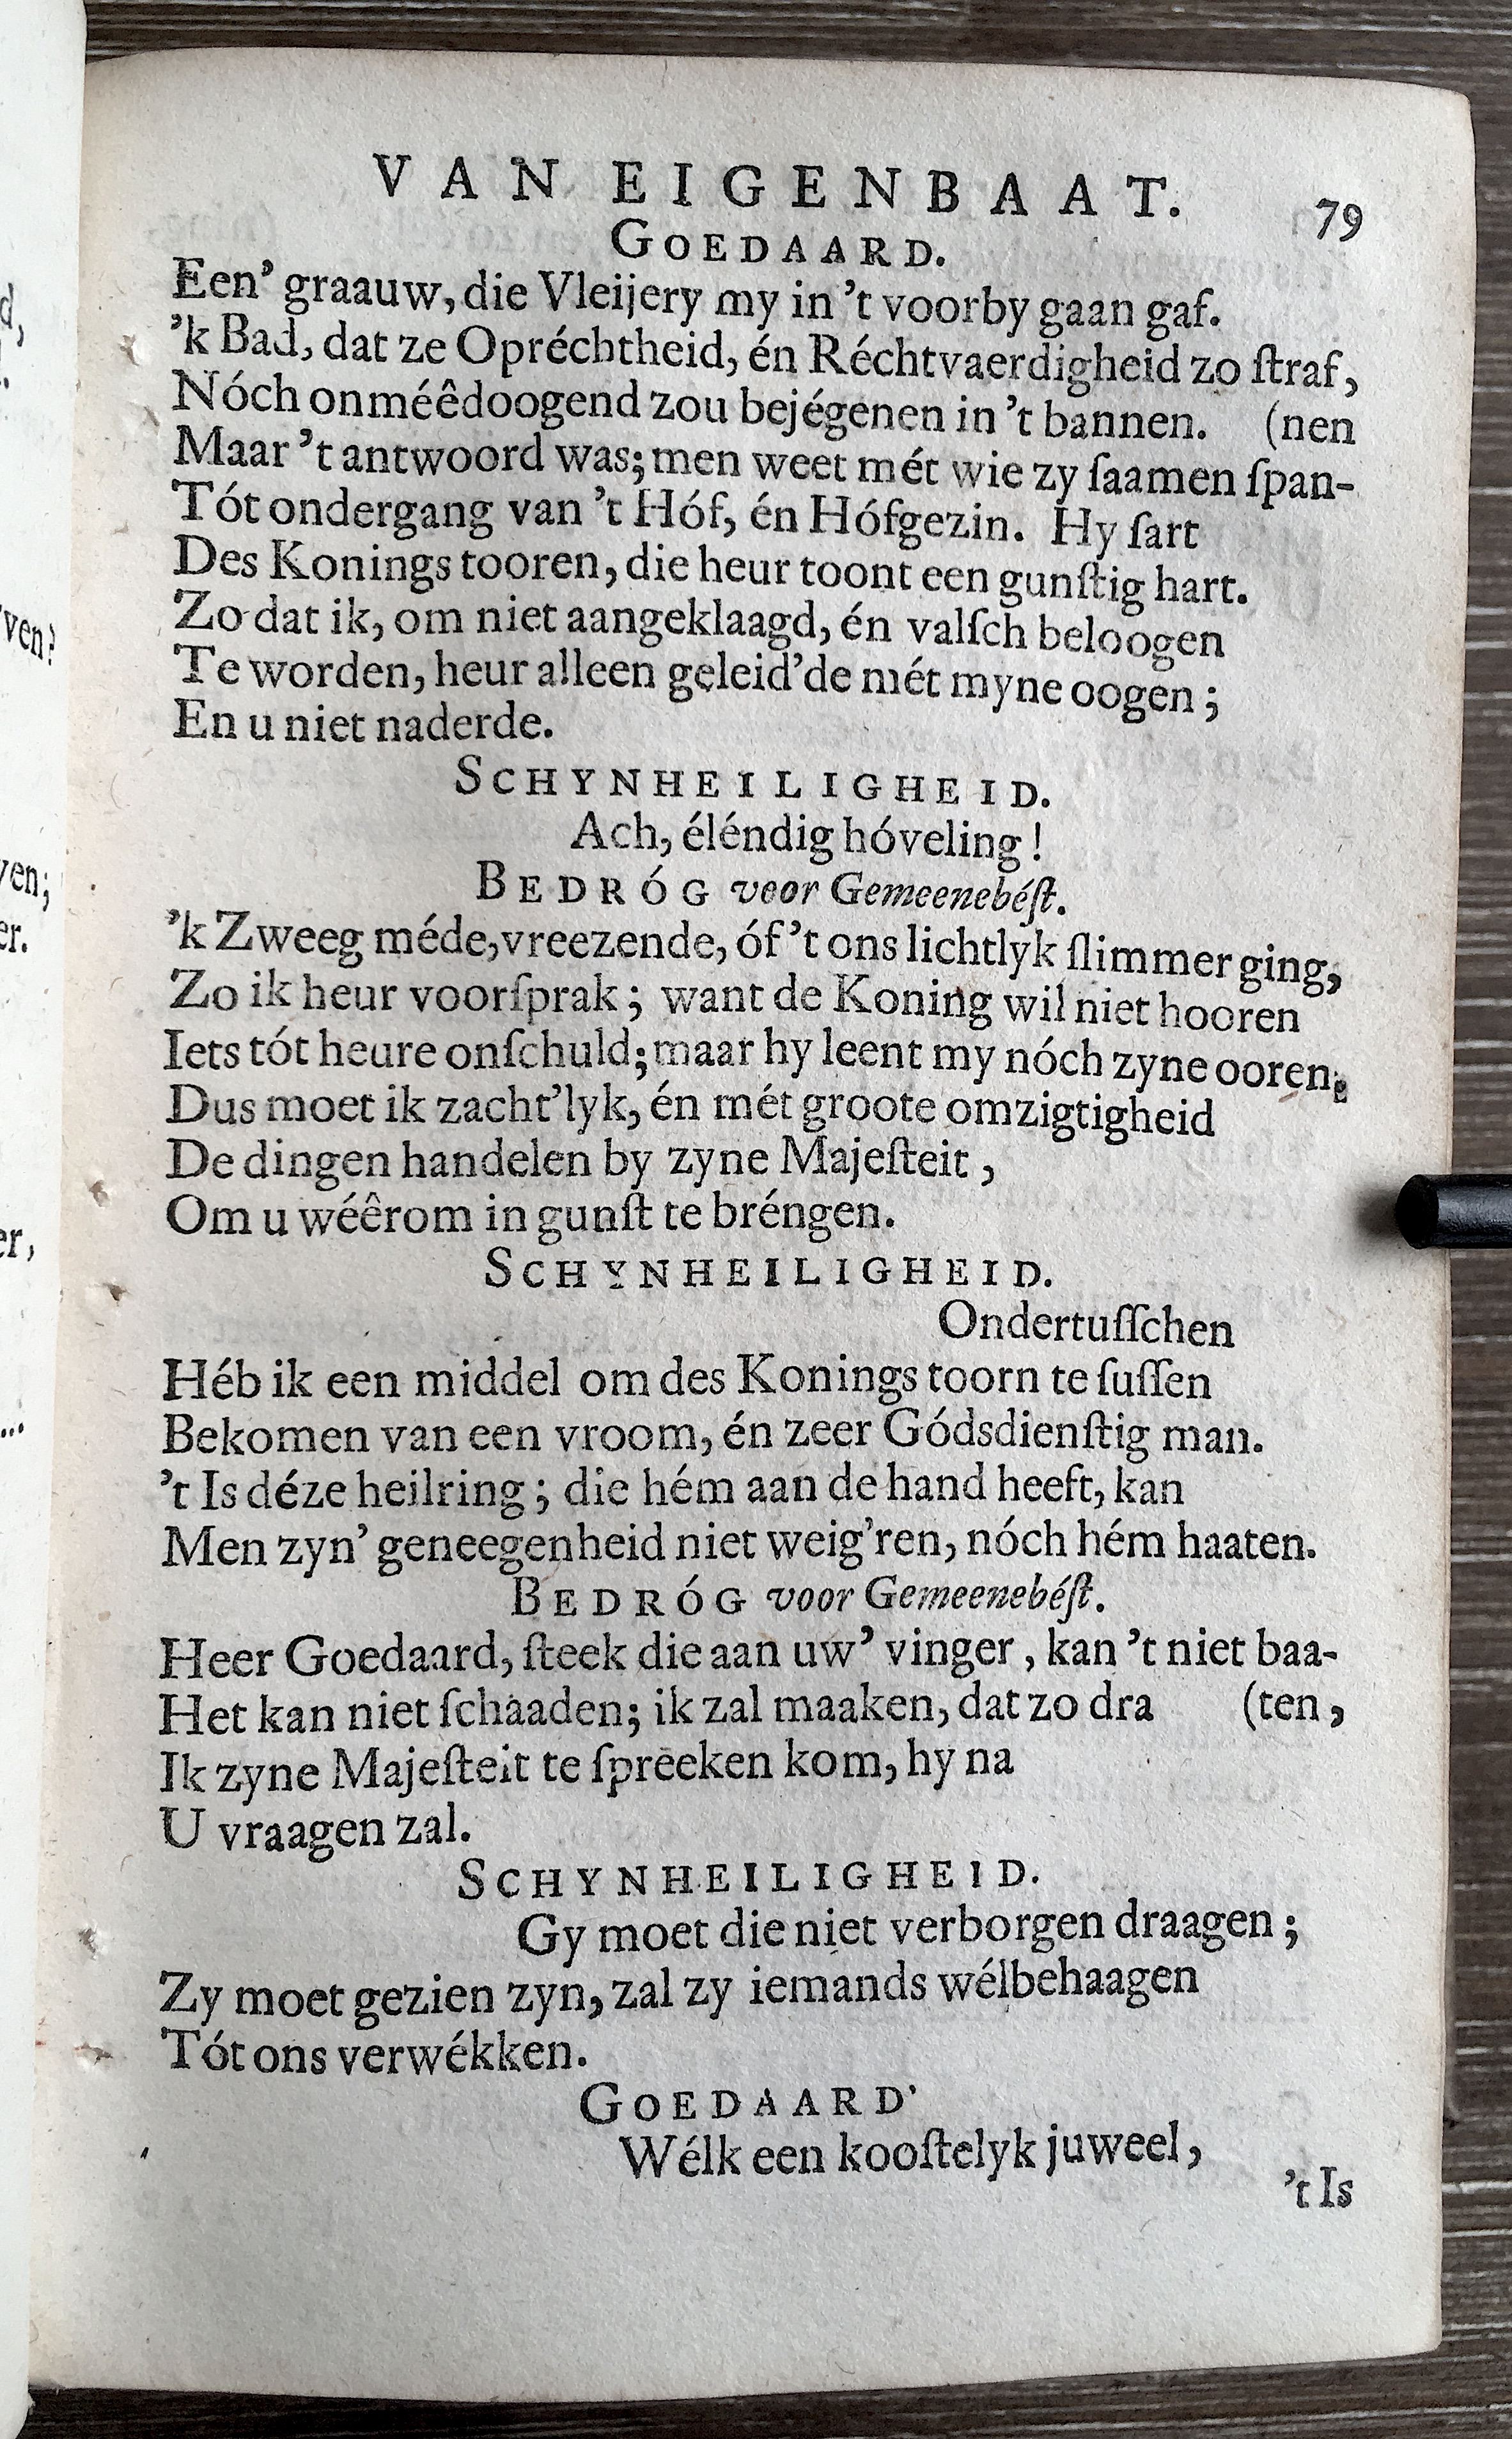 VAN EIGENBAAT. 79
GOEDAARD.
Een’ graauw, die Vleijery my in ’t voorby gaan gaf.
’k Bad, dat ze Opréchtheid, én Réchtvaerdigheid zo ſtraf,
Nóch onméêdoogend zou bejégenen in ’t bannen. (nen
Maar ’t antwoord was; men weet mét wie zy ſaamen ſpan-
Tót ondergang van ’t Hóf, én Hófgezin. Hy ſart
Des Konings tooren, die heur toont een gunſtig hart.
Zo dat ik, om niet aangeklaagd, én valſch beloogen
Te worden, heur alleen geleid’de mét myne oogen;
En u niet naderde.
SCHYNHEILIGHEID.
Ach, éléndig hóveling!
BEDRÓG voor Gemeenebéſt.
’k Zweeg méde, vreezende, óf ’t ons lichtlyk ſlimmer ging,
Zo ik heur voorſprak; want de Koning wil niet hooren
Iets tót heure onſchuld; maar hy leent my nóch zyne ooren.
Dus moet ik zacht’lyk, én mét groote omzigtigheid
De dingen handelen by zyne Majeſteit,
Om u wéêrom in gunſt te bréngen.
SCHYNHEILIGHEID.
Ondertuſſchen
Héb ik een middel om des Konings toorn te ſuſſen
Bekomen van een vroom, én zeer Gódsdienſtig man.
’t Is déze heilring; die hém aan de hand heeft, kan
Men zyn’ geneegenheid niet weig’ren, nóch hém haaten.
BEDRÓG voor Gemeenebéſt.
Heer Goedaard, ſteek die aan uw’ vinger, kan ’t niet baa-
Het kan niet ſchaaden; ik zal maaken, dat zo dra (ten,
Ik zyne Majeſteit te ſpreeken kom, hy na
U vraagen zal.
SCHYNHEILIGHEID.
Gy moet die niet verborgen draagen;
Zy moet gezien zyn, zal zy iemands wélbehaagen
Tót ons verwékken.
GOEDAARD’
Wélk een kooſtelyk juweel,
’t Is
d,
’ven?
ven;
er.
er,
...